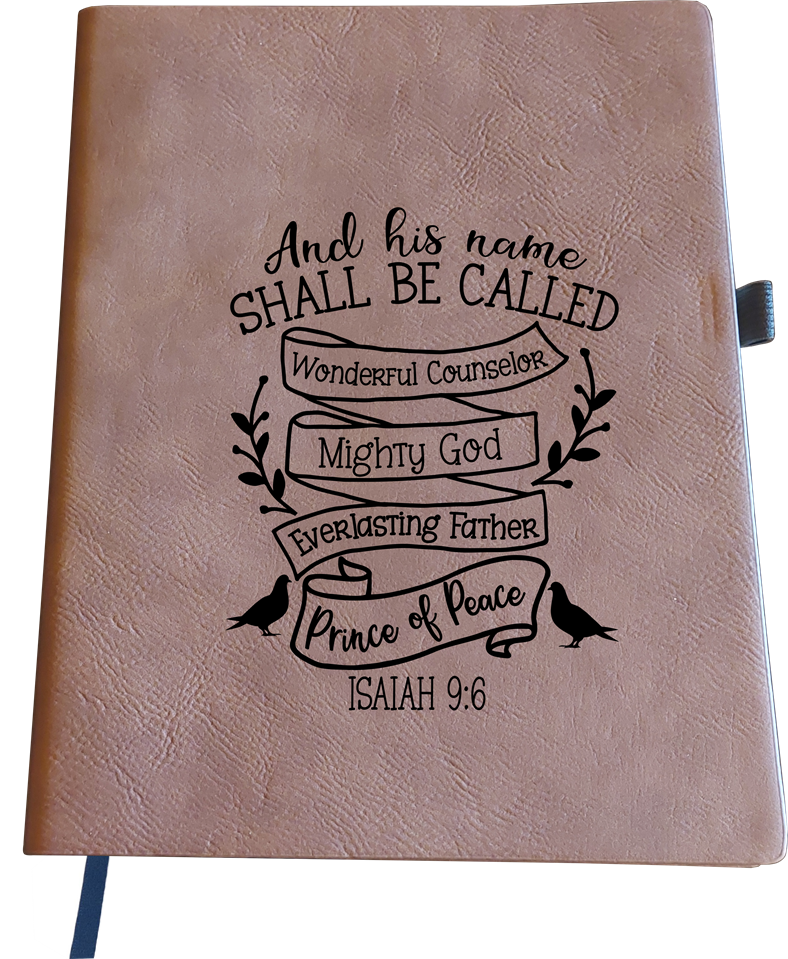 And his name
SHALL BE CALLED
Wonderful Counselor
Mighty God
Everlasting Father
Prince of Peace
ISAIAH 9:6